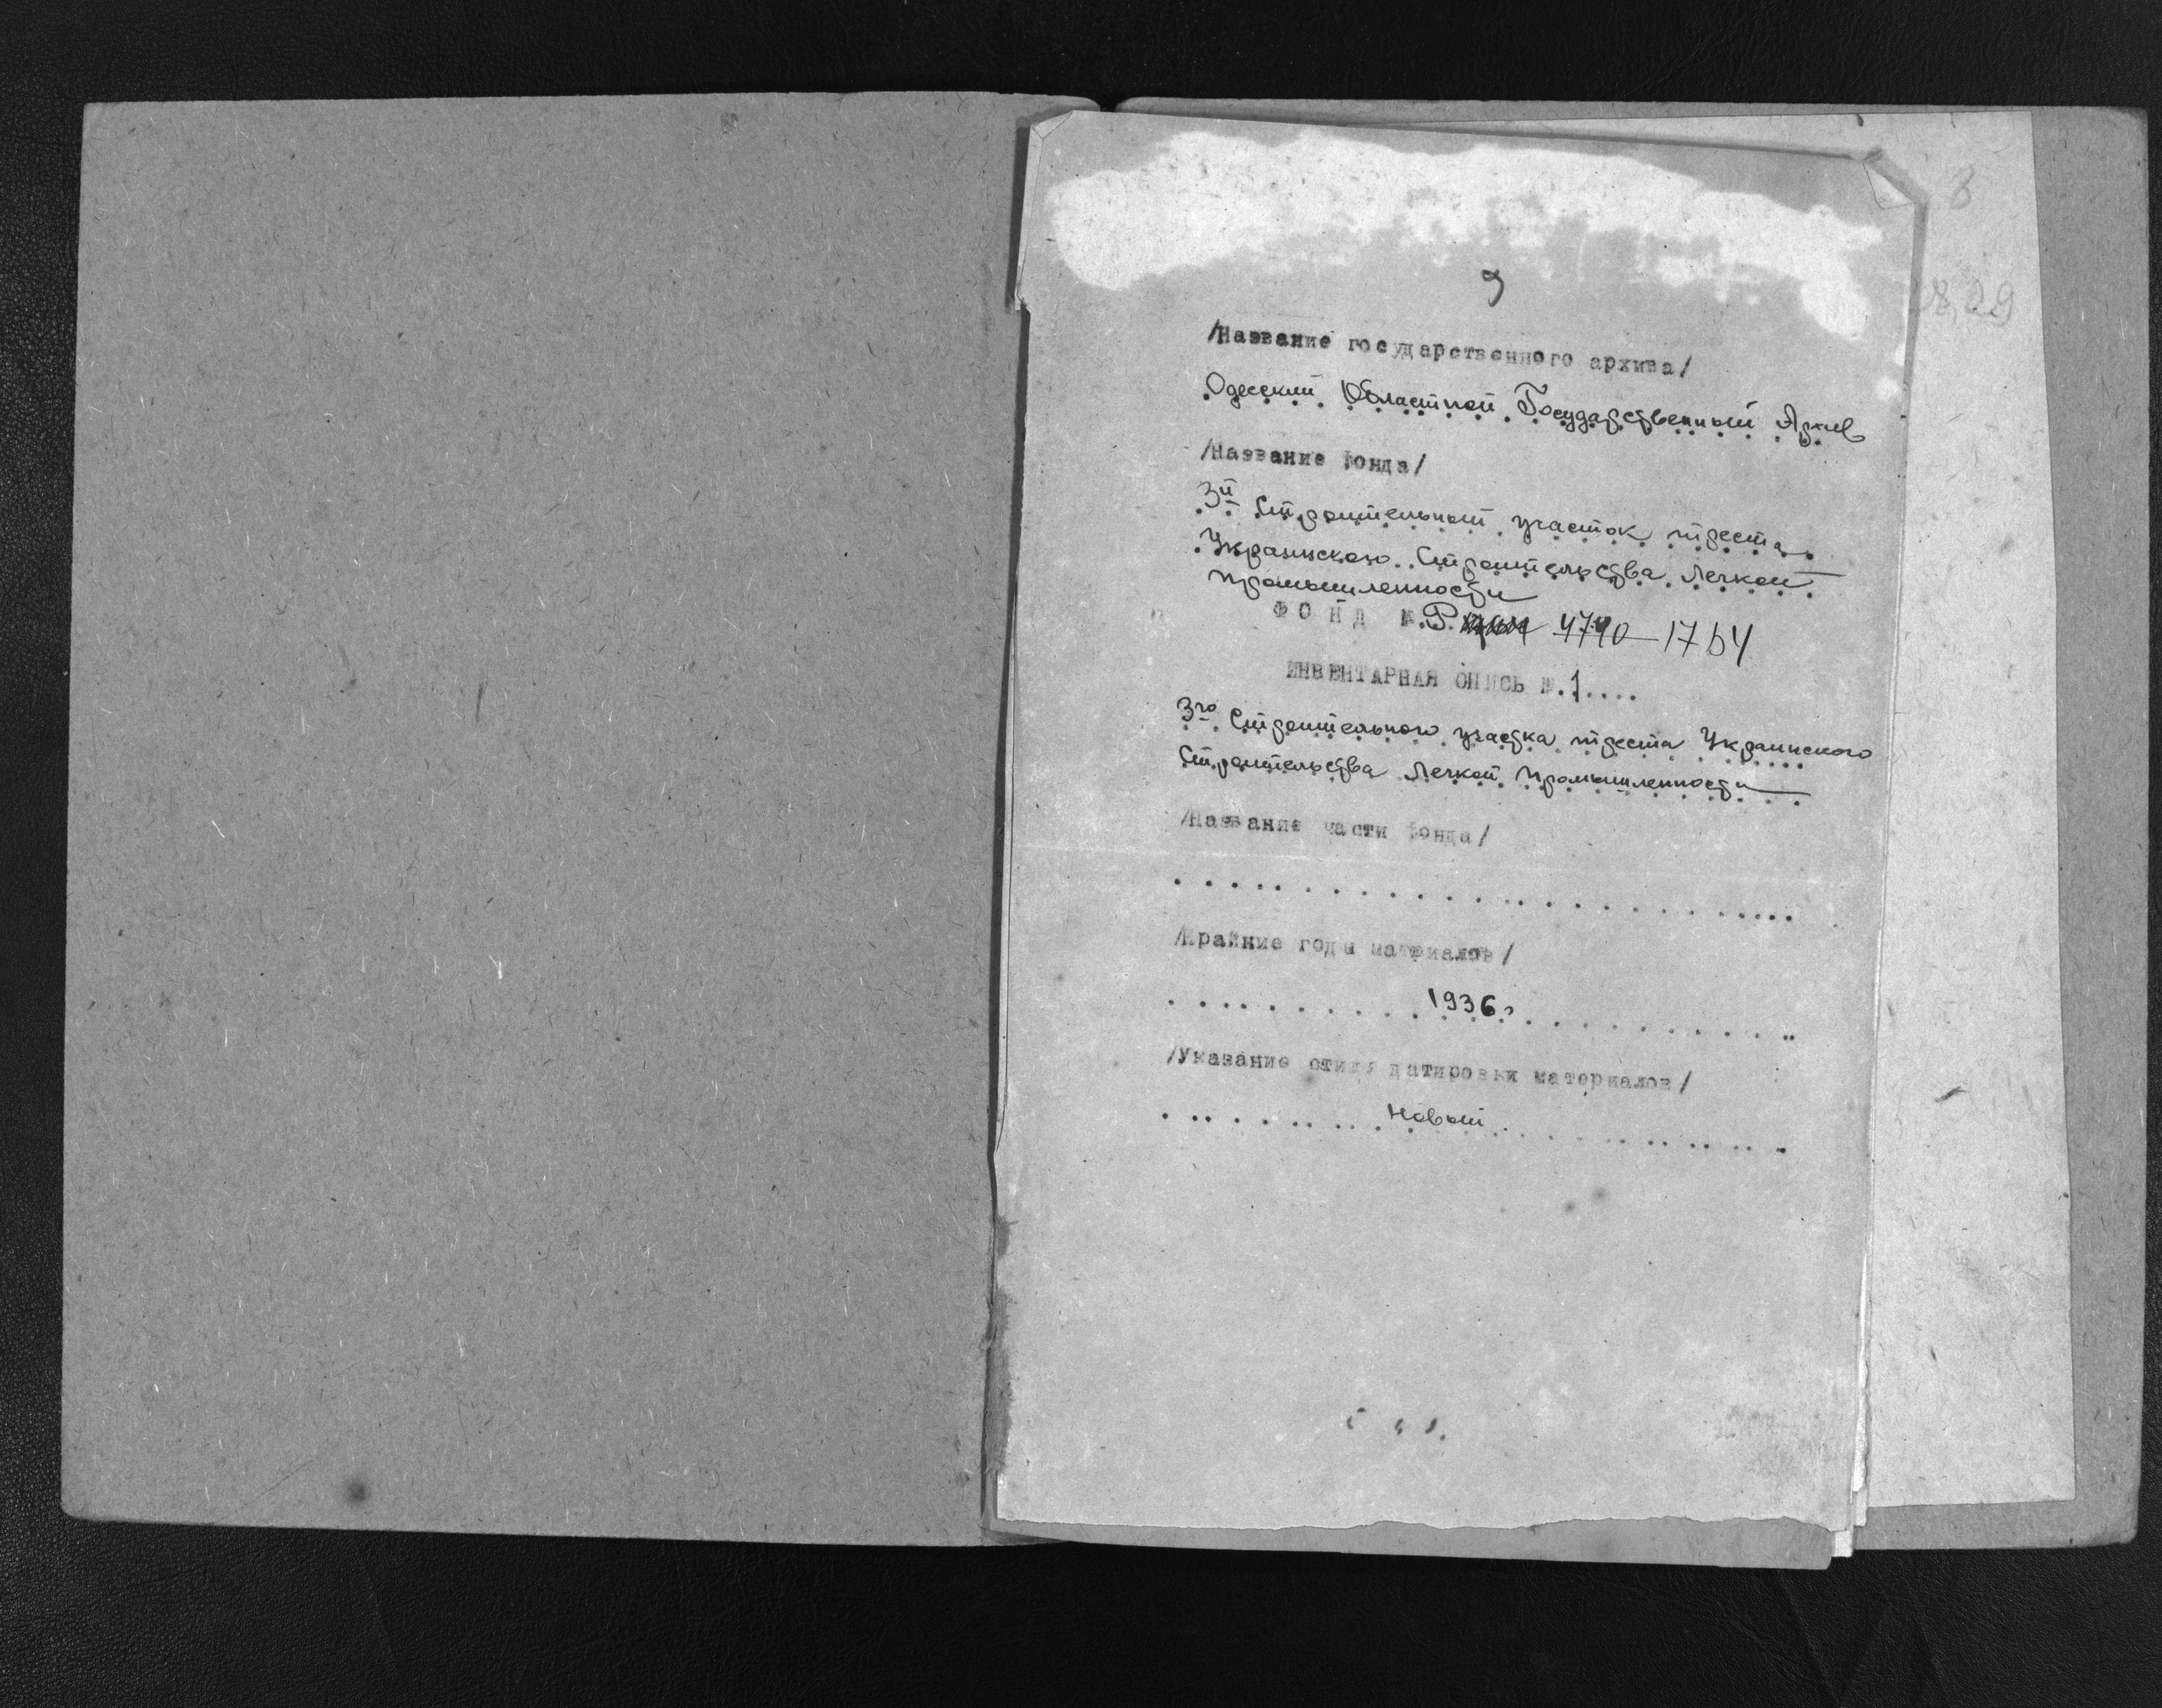 8
28,29
9
/Название государственного архива/
Одесский Областной Государственный Архив
/Название фонда/
3й Строительный участок треста
Украинского Строительства Легкой
промышленности
ФОНД №.Р. 4740-1754
ИНВЕНТАРНАЯ ОПИСЬ №.1....
3го Строительного участка треста Украинского
Строительства Легкой промышленности
/Название части фонда/
/Крайние годы материалов/
1936г
/Указание стиля датировки материалов/
Новый